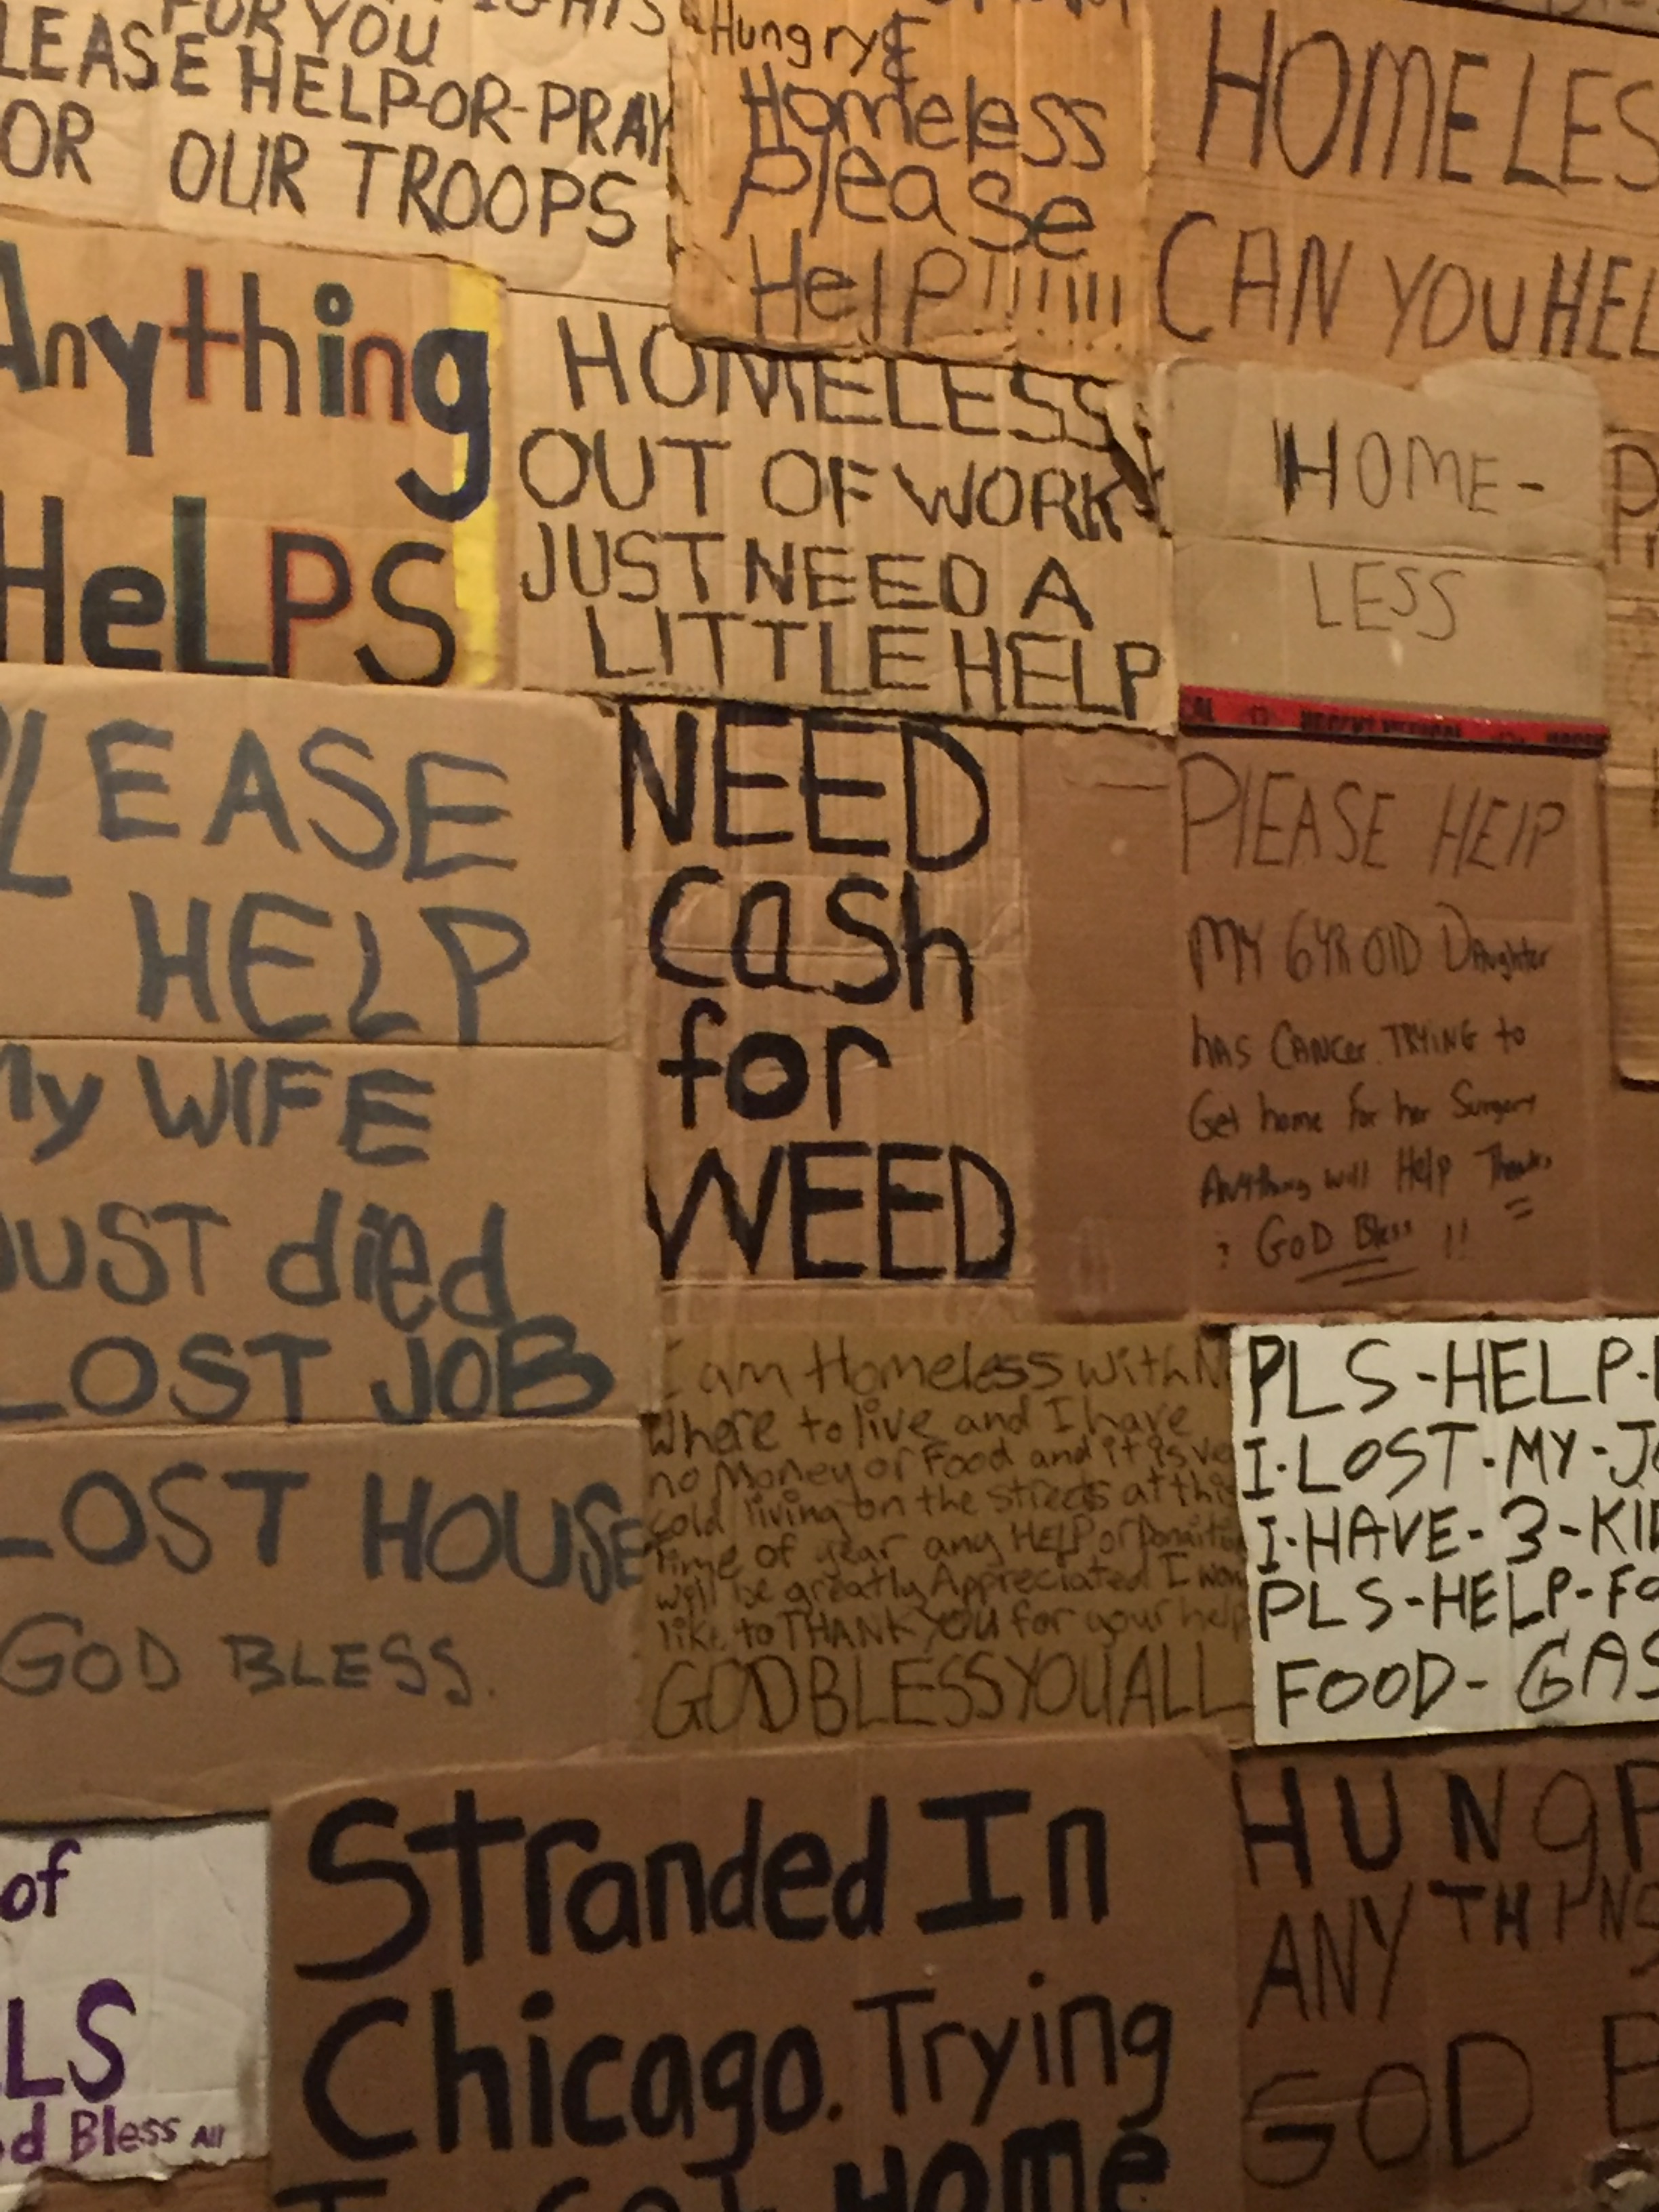 FOR YOU
LEASE HELP-OR-PRAY
OR OUR TROOPS
Hungry &
Homeless
Please
Help!!!!!!!
HOMELES
CAN YOU HEL
Anything
HeLPS
HOMELESS
OUT OF WORK
JUST NEED A
LITTLE HELP
HOME-
LESS
PLEASE
HELP
My WIFE
JUST died
LOST JOB
LOST HOUSE
GOD BLESS.
NEED
Cash
for
WEED
PlEASE HElP
MY 6YR OlD Daughter
hAS CANCer TRYING to
Get home For her Surgery
Anything will Help Thanks
GoD Bless !!
I am Homeless with N
Where to live and I have
no Money or Food and it is ve
cold living on the streets at this
Time of year any HELP or Donaitio
will be greatly Appreciated I wou
like to THANK YOU for your help
GOD BLESS YOU ALL
PLS-HELP-
I-LOST-MY-JO
I-HAVE-3-KID
PLS-HELP-FO
FOOD-GAS
of
LS
d Bless All
Stranded In
Chicago. Trying
To Get Home
HUNGR
ANYTHING
GOD B